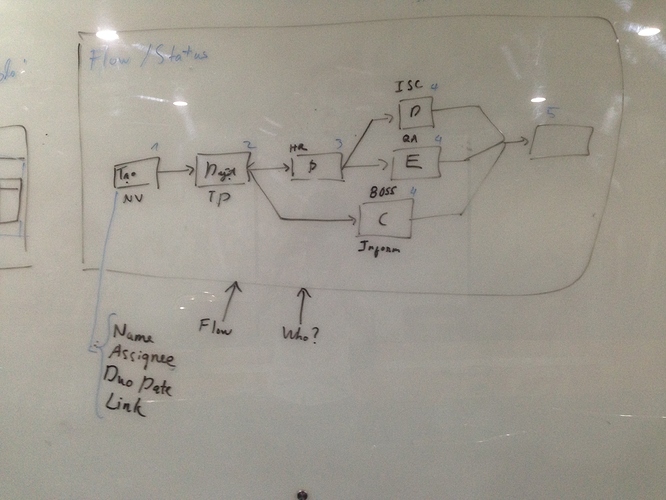 Flow / Status
1
Tạo
NV
2
Duyệt
TP
HR
3
D
ISC 4
D
QA 4
E
BOSS
4
C
Inform
5
Flow
Who?
Name
Assignee
Due Date
Link